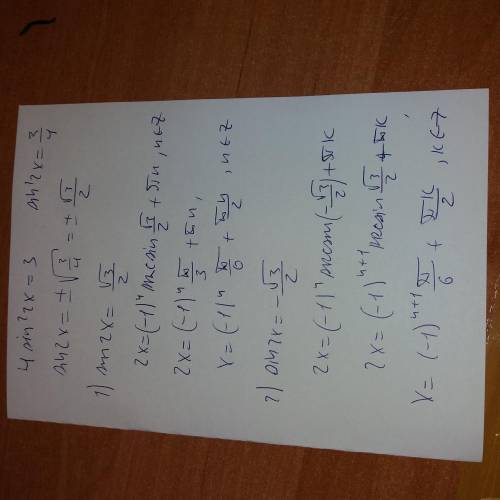 4 sin²2x = 3    sin²2x = 3/4
sin 2x = ±√(3/4) = ±√3/2
1) sin 2x = √3/2
2x = (-1)ⁿ arcsin √3/2 + πn, n∈Z
2x = (-1)ⁿ π/3 + πn,
x = (-1)ⁿ π/6 + πn/2, n∈Z
2) sin 2x = -√3/2
2x = (-1)ⁿ arcsin(-√3/2) + πk
2x = (-1)ⁿ⁺¹ arcsin √3/2 + πk
x = (-1)ⁿ⁺¹ π/6 + πk/2, k∈Z